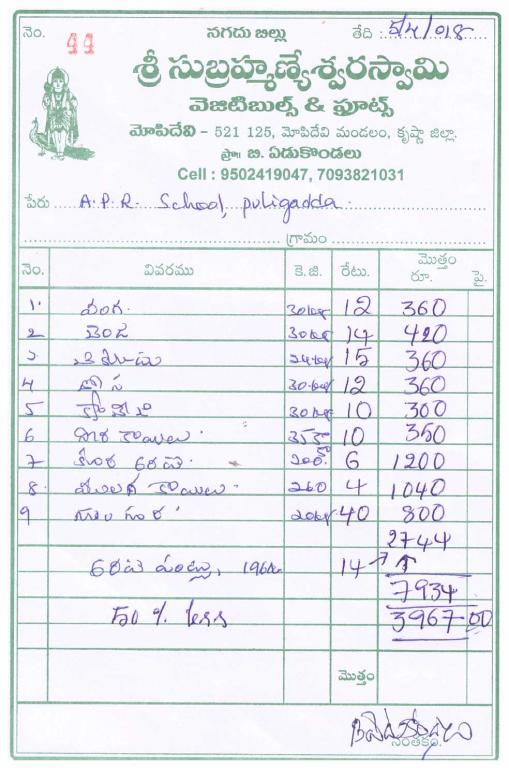 నెం. 44 నగదు బిల్లు తేది : 5/4/018
శ్రీ సుబ్రహ్మణ్యేశ్వరస్వామి
వెజిటిబుల్స్ & ఫ్రూట్స్
మోపిదేవి - 521 125, మోపిదేవి మండలం, కృష్ణా జిల్లా.
ప్రొ॥ బి. ఏడుకొండలు
Cell : 9502419047, 7093821031
పేరు A.P.R. School, puligadda.
గ్రామం
నెం. వివరము కె.జి. రేటు. మొత్తం రూ. పై.
1. వంగ. 30 12 360
2 బెండ 30 14 420
3. 24 15 360
4 దోస 30 12 360
5 30 10 300
6 కాయలు. 35 10 350
7 అరటి. 200 6 1200
8. ములగ కాయలు. 260 4 1040
9 గోంగూర 20 40 800
2744
అరటి పండ్లు, 196 14
7934
50 % less 3967 00
మొత్తం
సంతకం.